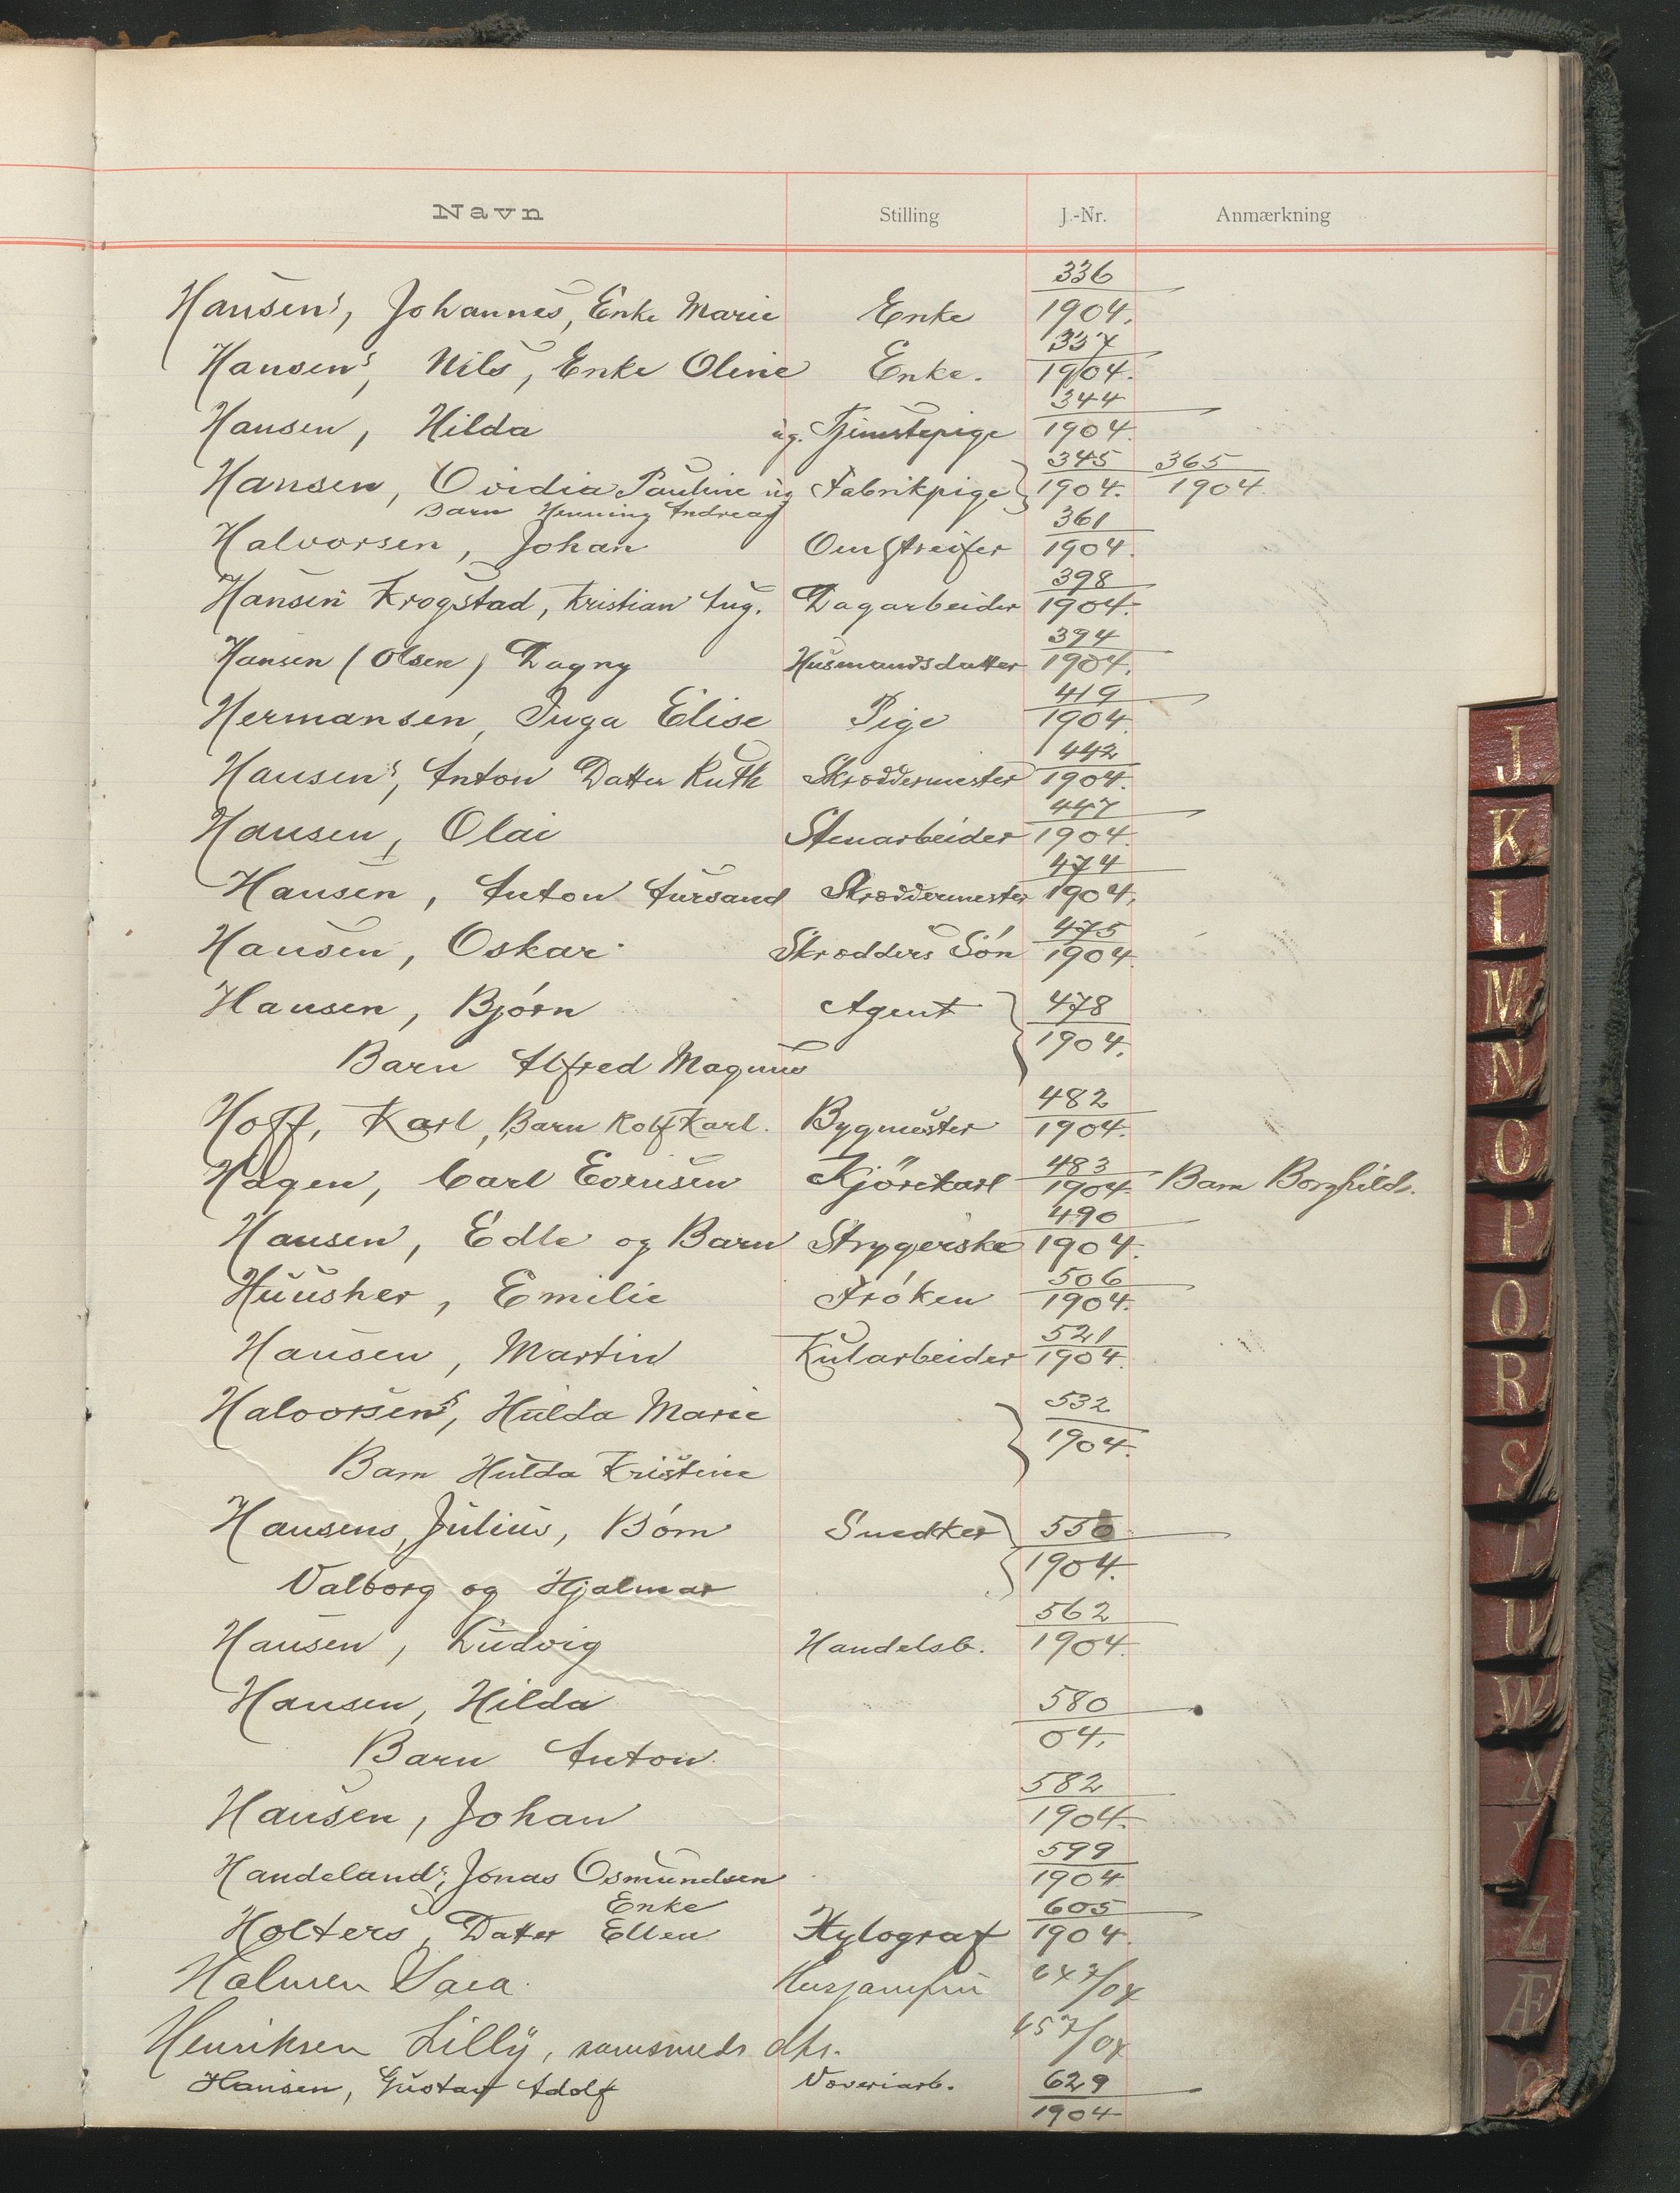 Navn Stilling J.-Nr. Anmærkning
Hansen's, Johannes, Enke Marie Enke 336/1904.
Hansen's, Nils, Enke Oline Enke. 337/1904.
Hansen, Hilda ug. Tjenestepige 344/1904.
Hansen, Ovidia Pauline ug Fabrikpige 345/1904. 365/1904
Barn Henning Andreas
Halvorsen, Johan Omstreifer 361/1904.
Hansen Krogstad, Kristian Aug. Dagarbeider 398/1904.
Hansen (Olsen) Dagny Husmandsdatter 394/1904.
Hermansen, Inga Elise Pige 419/1904.
Hansen's, Anton Datter Ruth Skræddermester 442/1904.
Hansen, Olai Stenarbeider 447/1904.
Hansen, Anton Aursand Skræddermester 474/1904.
Hansen, Oskar Skrædders Søn 475/1904.
Hansen, Bjørn Agent 478/1904.
Barn Alfred Magnus
Hoff, Karl, Barn Rolf Karl. Bygmester 482/1904.
Hagen, Carl Evensen Kjørekarl 483/1904. Barn Borghild.
Hansen, Edle og Barn Strygerske 490/1904.
Huusher, Emilie Frøken 506/1904.
Hansen, Martin Kularbeider 521/1904.
Halvorsen's, Hulda Marie 532/1904.
Barn Hulda Kristine
Hansens, Julius, Børn Snedker 1904.
Valborg og Hjalmar
Hansen, Ludvig Handelsb. 562/1904.
Hansen, Hilda 580/04.
Barn Anton.
Hansen, Johan 582/1904.
Handeland's, Jonas Osmundsen 599/1904
Enke
Holters, Datter Ellen Xylograf 605/1904.
Holmsen Husjomfru 647/04
Henriksen Lilly, dtr. 457/04
Hansen, Gustav Adolf Væveriarb. 629/1904
J
K
L
M
N
O
P
Q
R
S
T
U
W
X
Y
Z
Æ
Ø